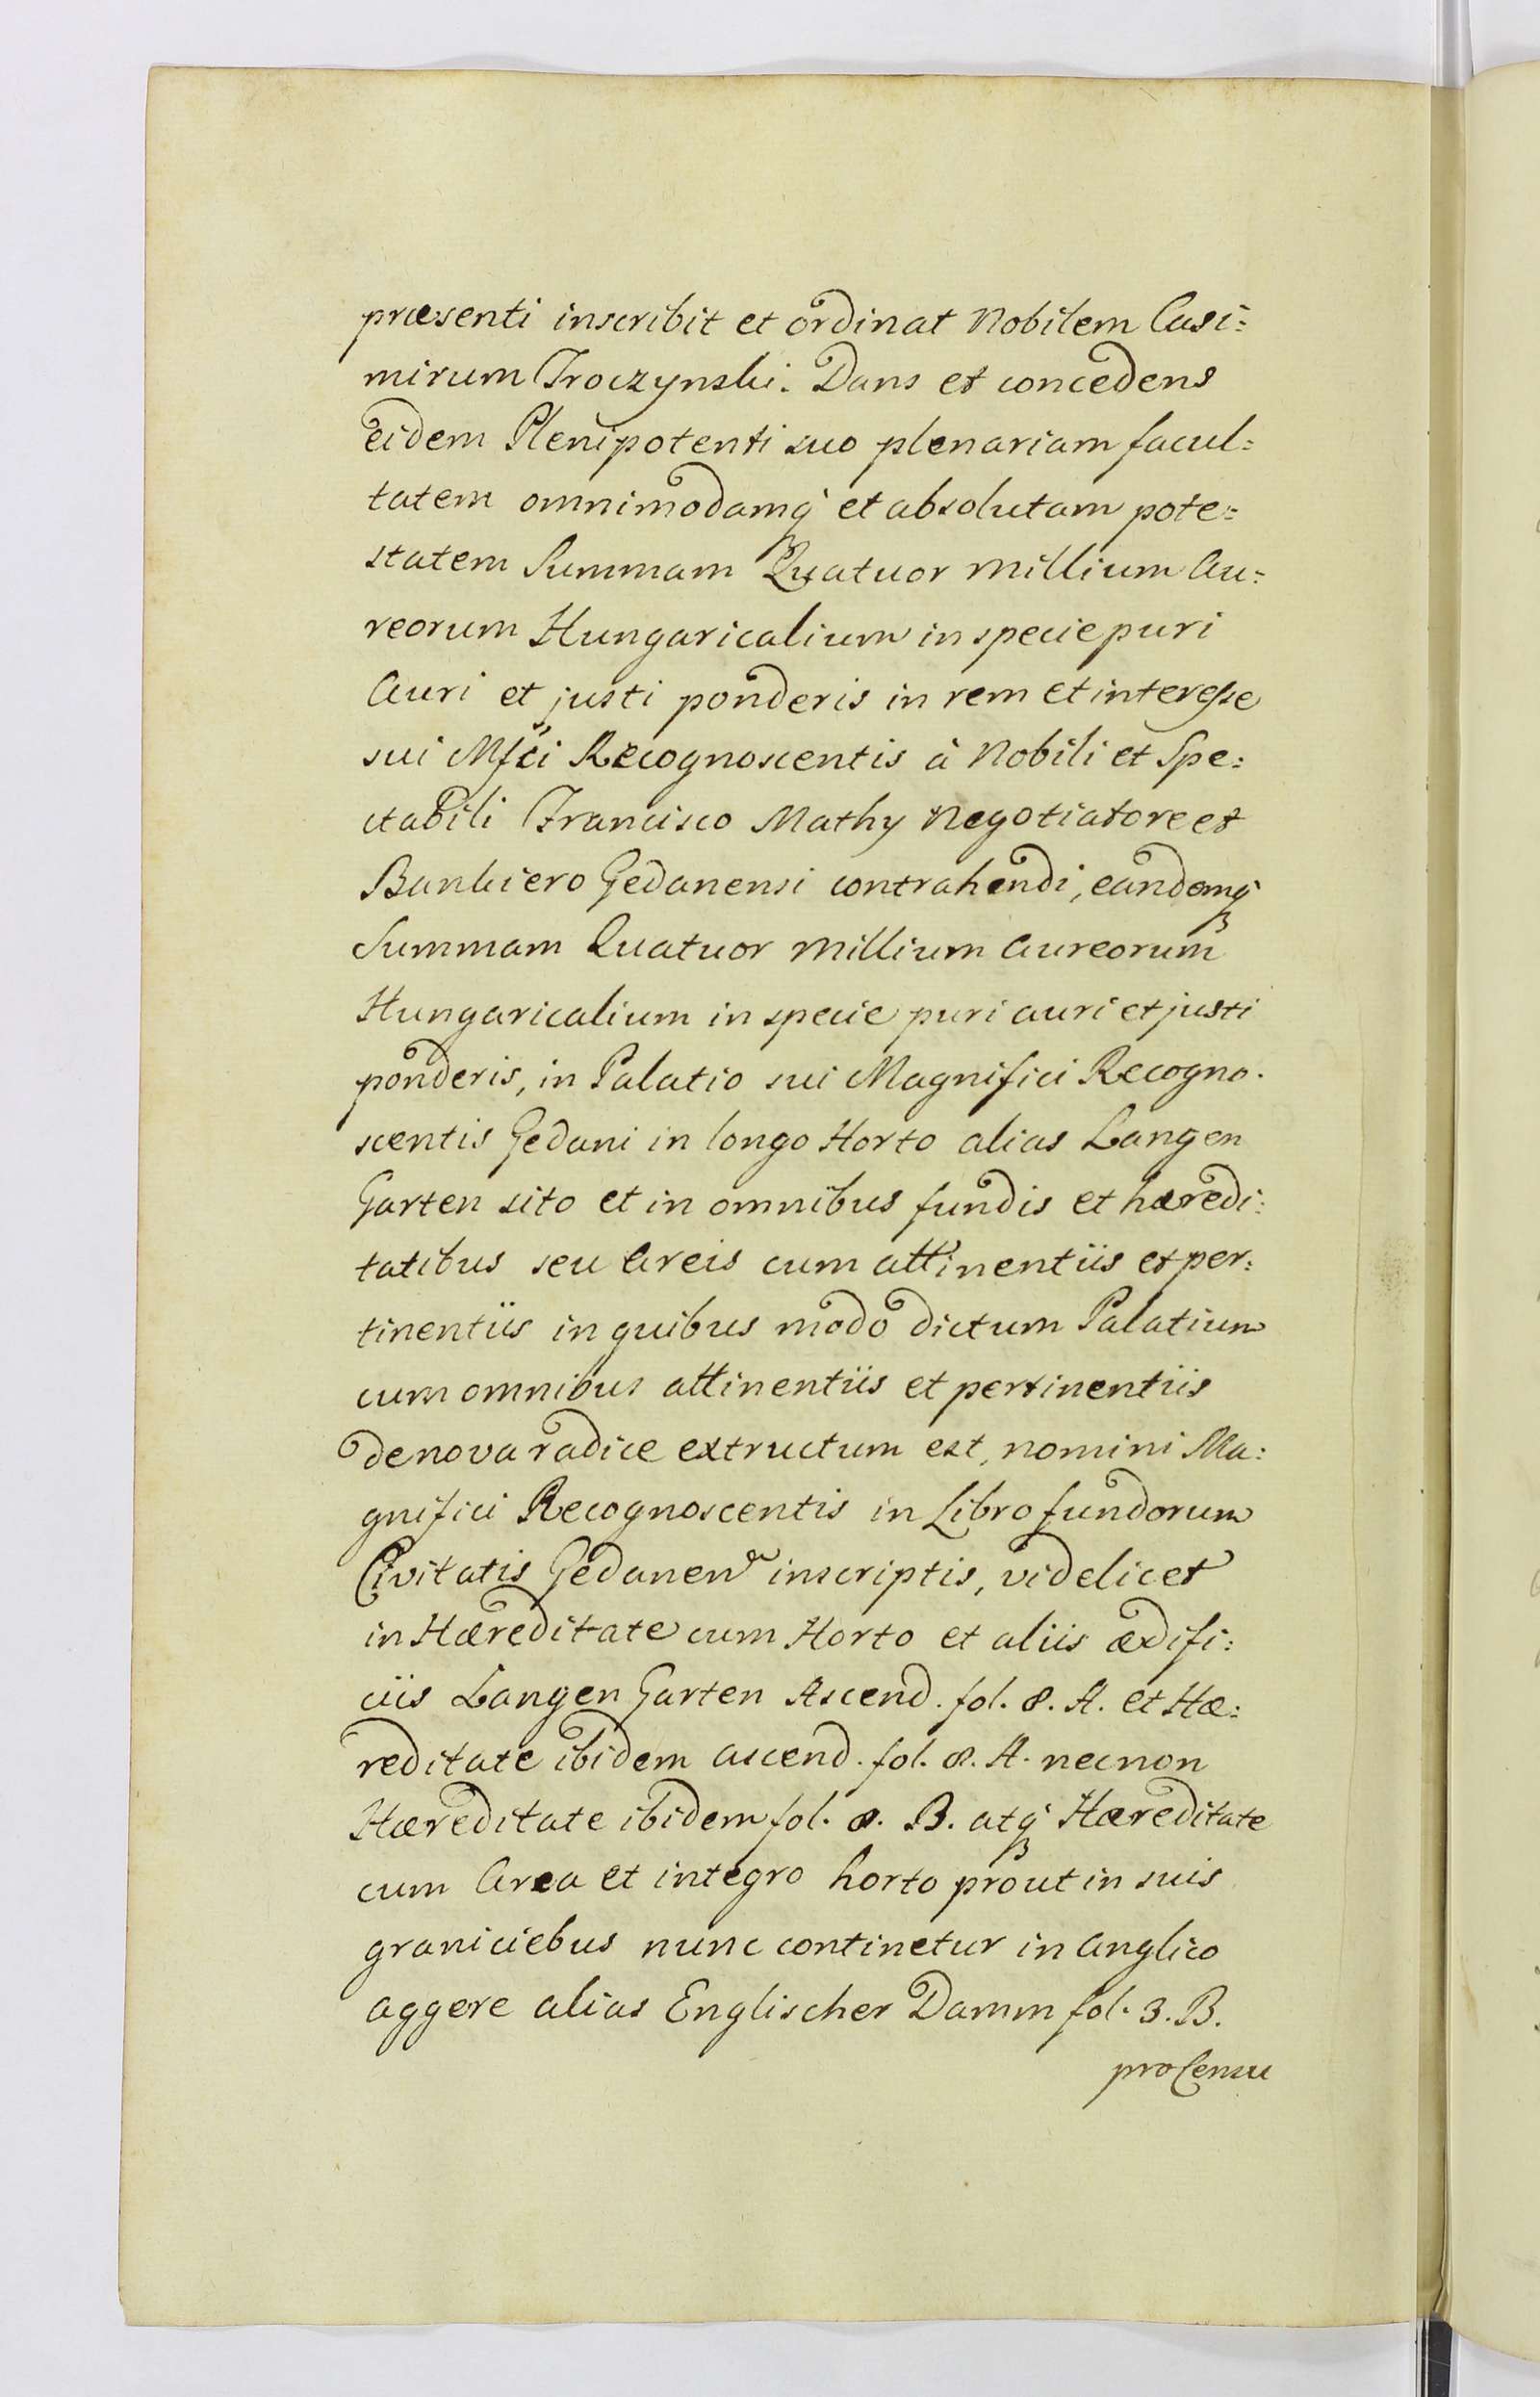 præsenti inscribit et ordinat Nobilem Casi=
mirum Troczynski. Dans et concedens
eidem Plenipotenti suo plenariam facul=
tatem omnimodamq́ et absolutam pote=
statem Summam Quatuor Millium Au=
reorum Hungaricalium in specie puri
Auri et justi ponderis in rem et interesse
sui Mfci Recognoscentis à Nobili et Spe=
ctabili Francisco Mathy Negotiatore et
Bankiero Gedanensi contrahendi, eandemq́
Summam Quatuor Millium Aureorum
Hungaricalium in specie puri auri et justi
ponderis, in Palatio sui Magnifici Recogno=
scentis Gedani in longo Horto alias Langen
Garten sito et in omnibus fundis et hæredi=
tatibus seu Areis cum attinentiis et per=
tinentiis in quibus modo dictum Palatium
cum omnibus attinentiis et pertinentiis
de nova radice extructum est, nomini Ma=
gnifici Recognoscentis in Libro fundorum
Civitatis Gedanen inscriptis, videlicet
in Hæreditate cum Horto et aliis ædifi=
ciis Langen Garten Ascend. fol. 8. A. et Hæ=
reditate ibidem ascend. fol. 8. A. necnon
Hæreditate ibidem fol. 8. B. atq́ Hæreditate
cum Area et integro horto prout in suis
graniciebus nunc continetur in Anglico
aggere alias Englischer Damm fol. 3. B.
pro Censu